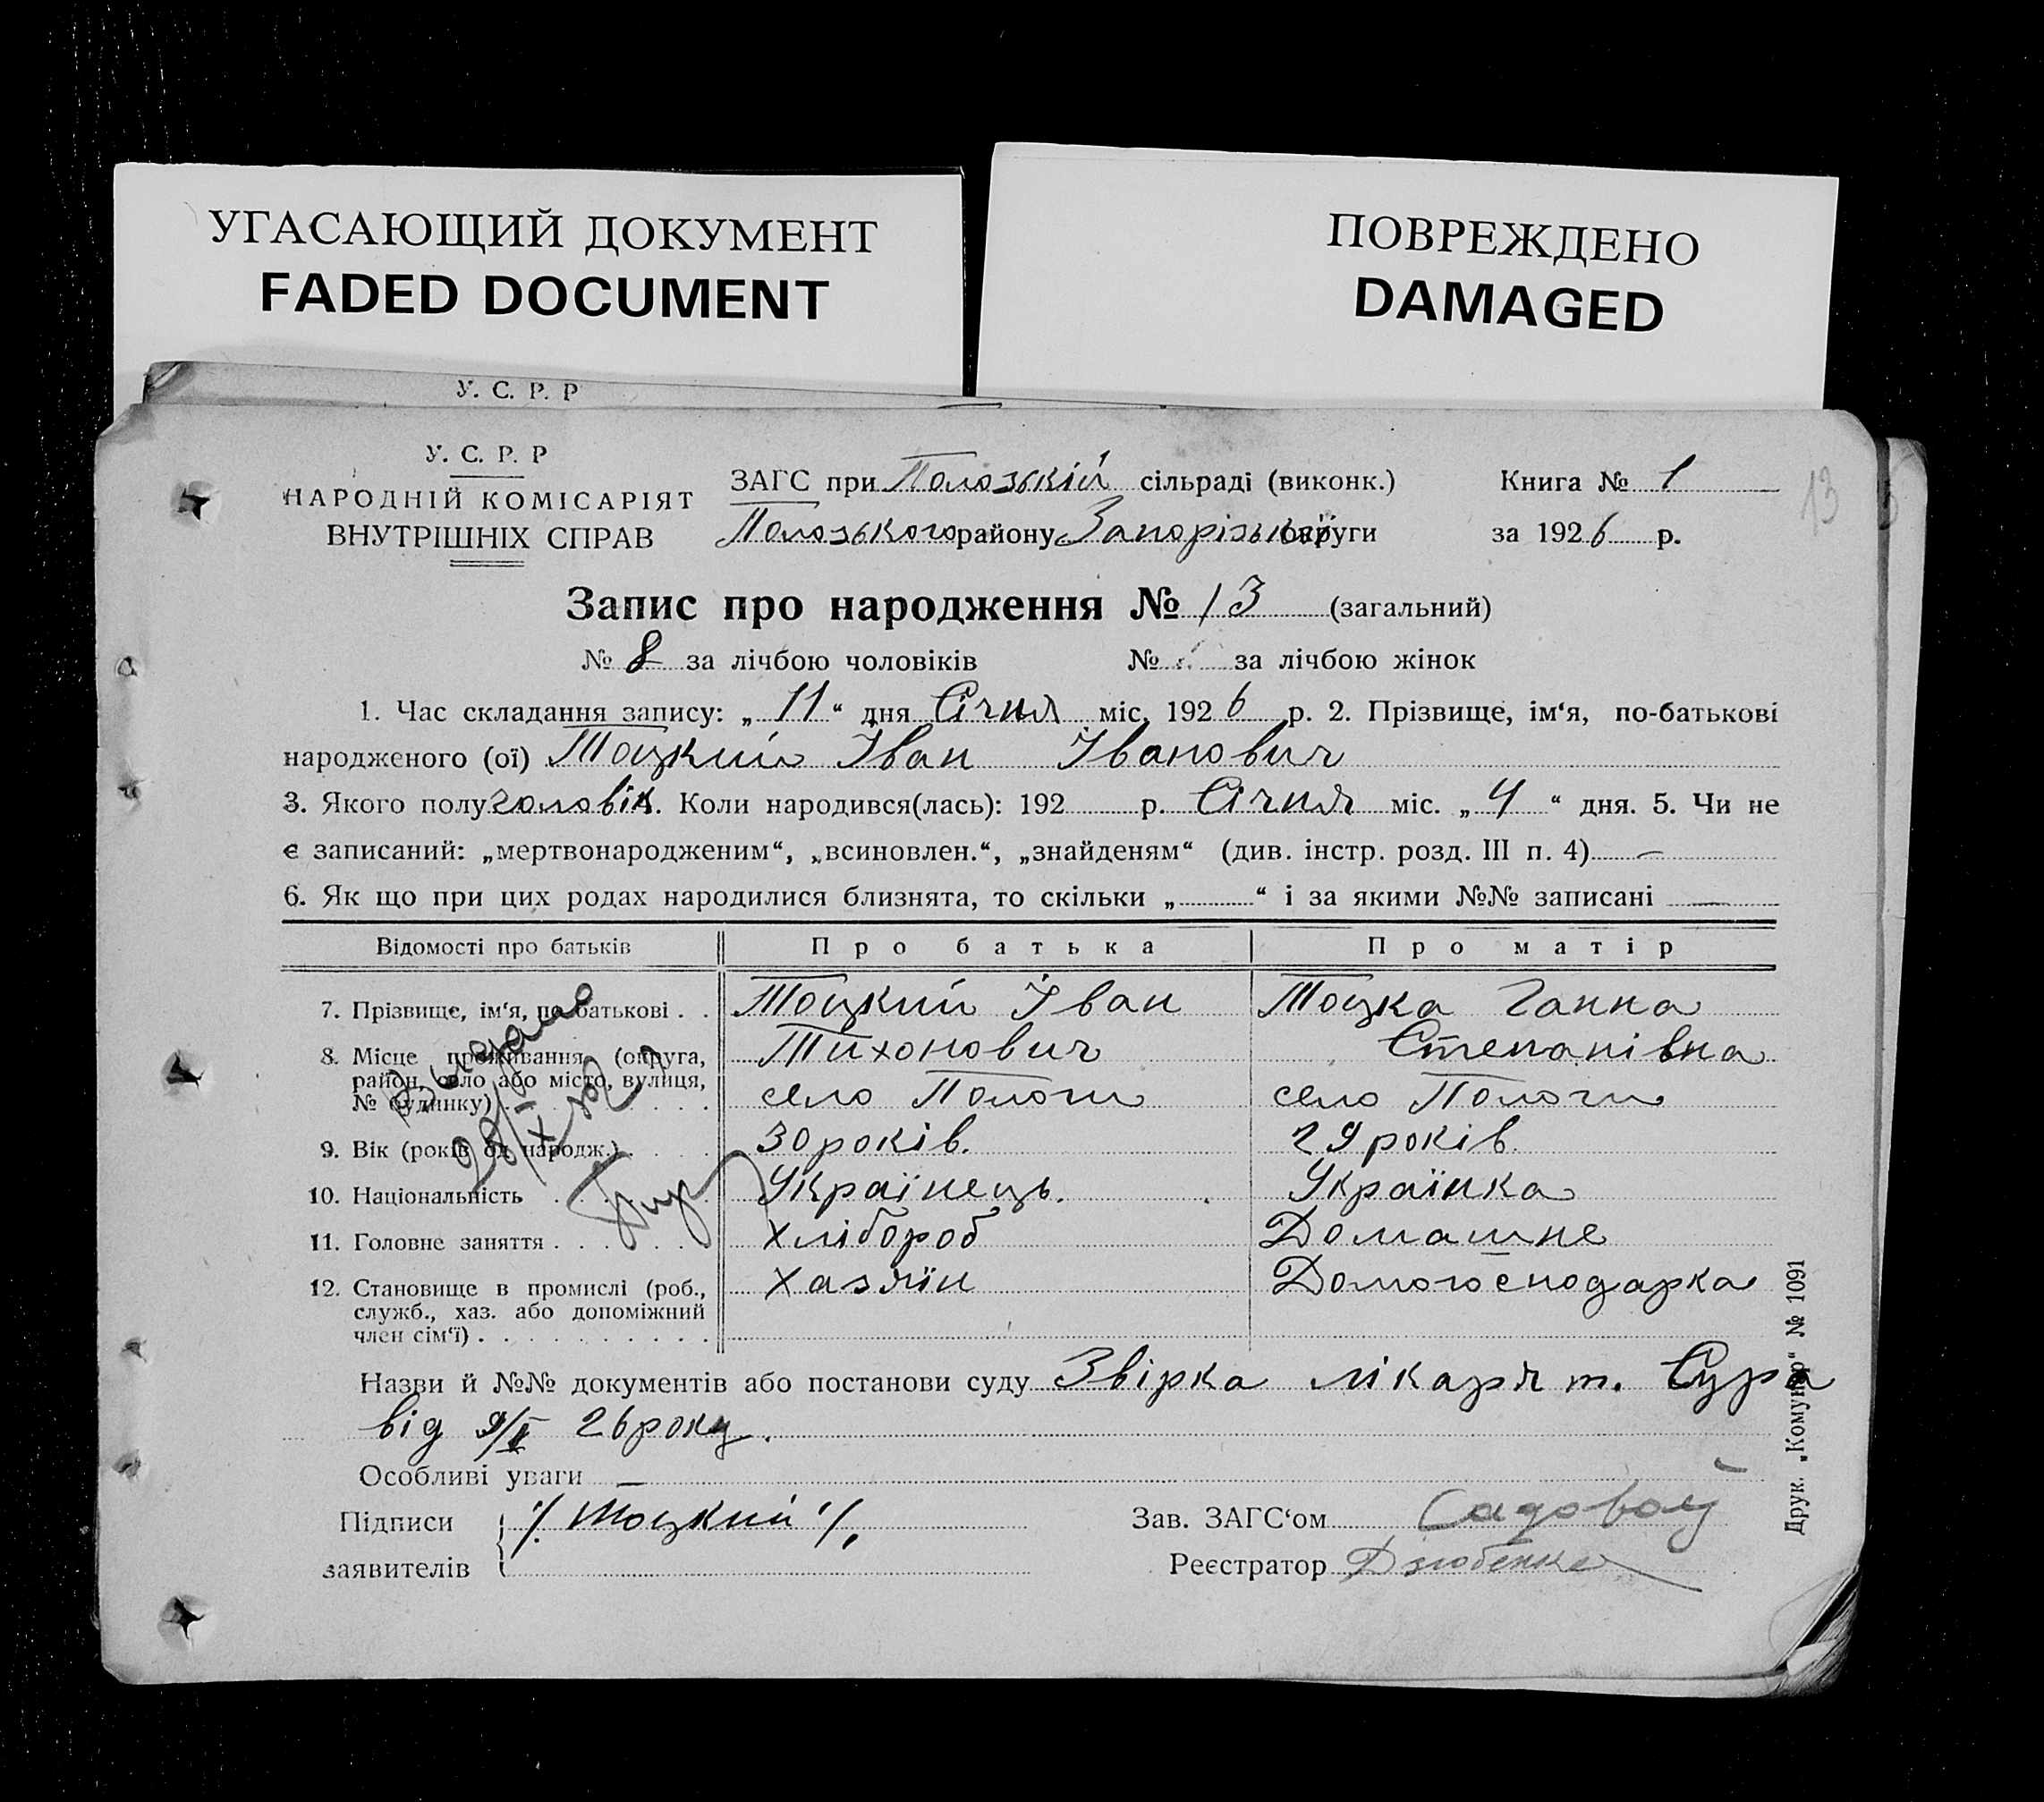 УГАСАЮЩИЙ ДОКУМЕНТ
FADED DOCUMENT
ПОВРЕЖДЕНО
DAMAGED
У. С. Р. Р
У. С. Р. Р
НАРОДНІЙ КОМІСАРІЯТ
ВНУТРІШНІХ СПРАВ
ЗАГС при Полозькій сільраді (виконк.)
Полозького району Запорізької округи
Книга № 1
за 1926 р.
13
Запис про народження № 13 (загальний)
№ 8 за лічбою чоловіків № за лічбою жінок
1. Час складання запису: „ 11 “ дня Січня міс. 1926 р. 2. Прізвище, ім‘я, по-батькові
народженого (ої) Тоцкий Іван Іванович
3. Якого полу чоловік. Коли народився(лась): 192 р. Січня міс. „ 4 “ дня. 5. Чи не
є записаний: „мертвонародженим“, „всиновлен.“, „знайденям“ (див. інстр. розд. III п. 4) —
6. Як що при цих родах народилися близнята, то скільки „ “ і за якими №№ записані —
Відомості про батьків Про батька Про матір
7. Прізвище, ім‘я, по-батькові . . Тоцкий Іван Тоцка Ганна
Тихонович Степанівна
8. Місце проживання (округа,
район, село або місто, вулиця,
№ будинку) село Пологи село Пологи
9. Вік (років од народж.) 30 років. 29 років.
10. Національність Українець. Українка
11. Головне заняття хлібороб Домашне
12. Становище в промислі (роб.,
служб., хаз. або допоміжний
член сім‘ї) хазяїн Домогосподарка
Видано
28/X
Назви й №№ документів або постанови суду Звірка лікаря т. Сура
від 9/I 26 року.
Особливі уваги —
Підписи заявителів /Тоцкий/.
Зав. ЗАГС‘ом Садовой
Реєстратор Дзюбенко
Друк. „Комунар“ № 1091